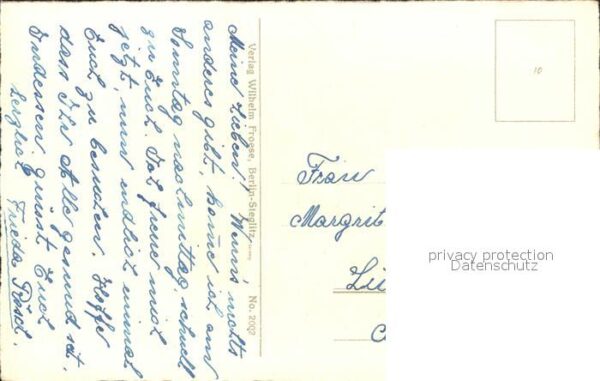 Meine Lieben! Wenn's nichts
anderes gibt, komme ich am
Sonntag nachmittag schnell
zu Euch. Ich freue mich
jetzt, nun endlich einmal
Euch zu besuchen. Hoffe
dass Ihr Alle gesund seit.
Indessen grüsst Euch
herzlich Frieda
Verlag Wilhelm Froese, Berlin-Steglitz
No. 2002
10
Frau
Margrit
privacy protection
Datenschutz